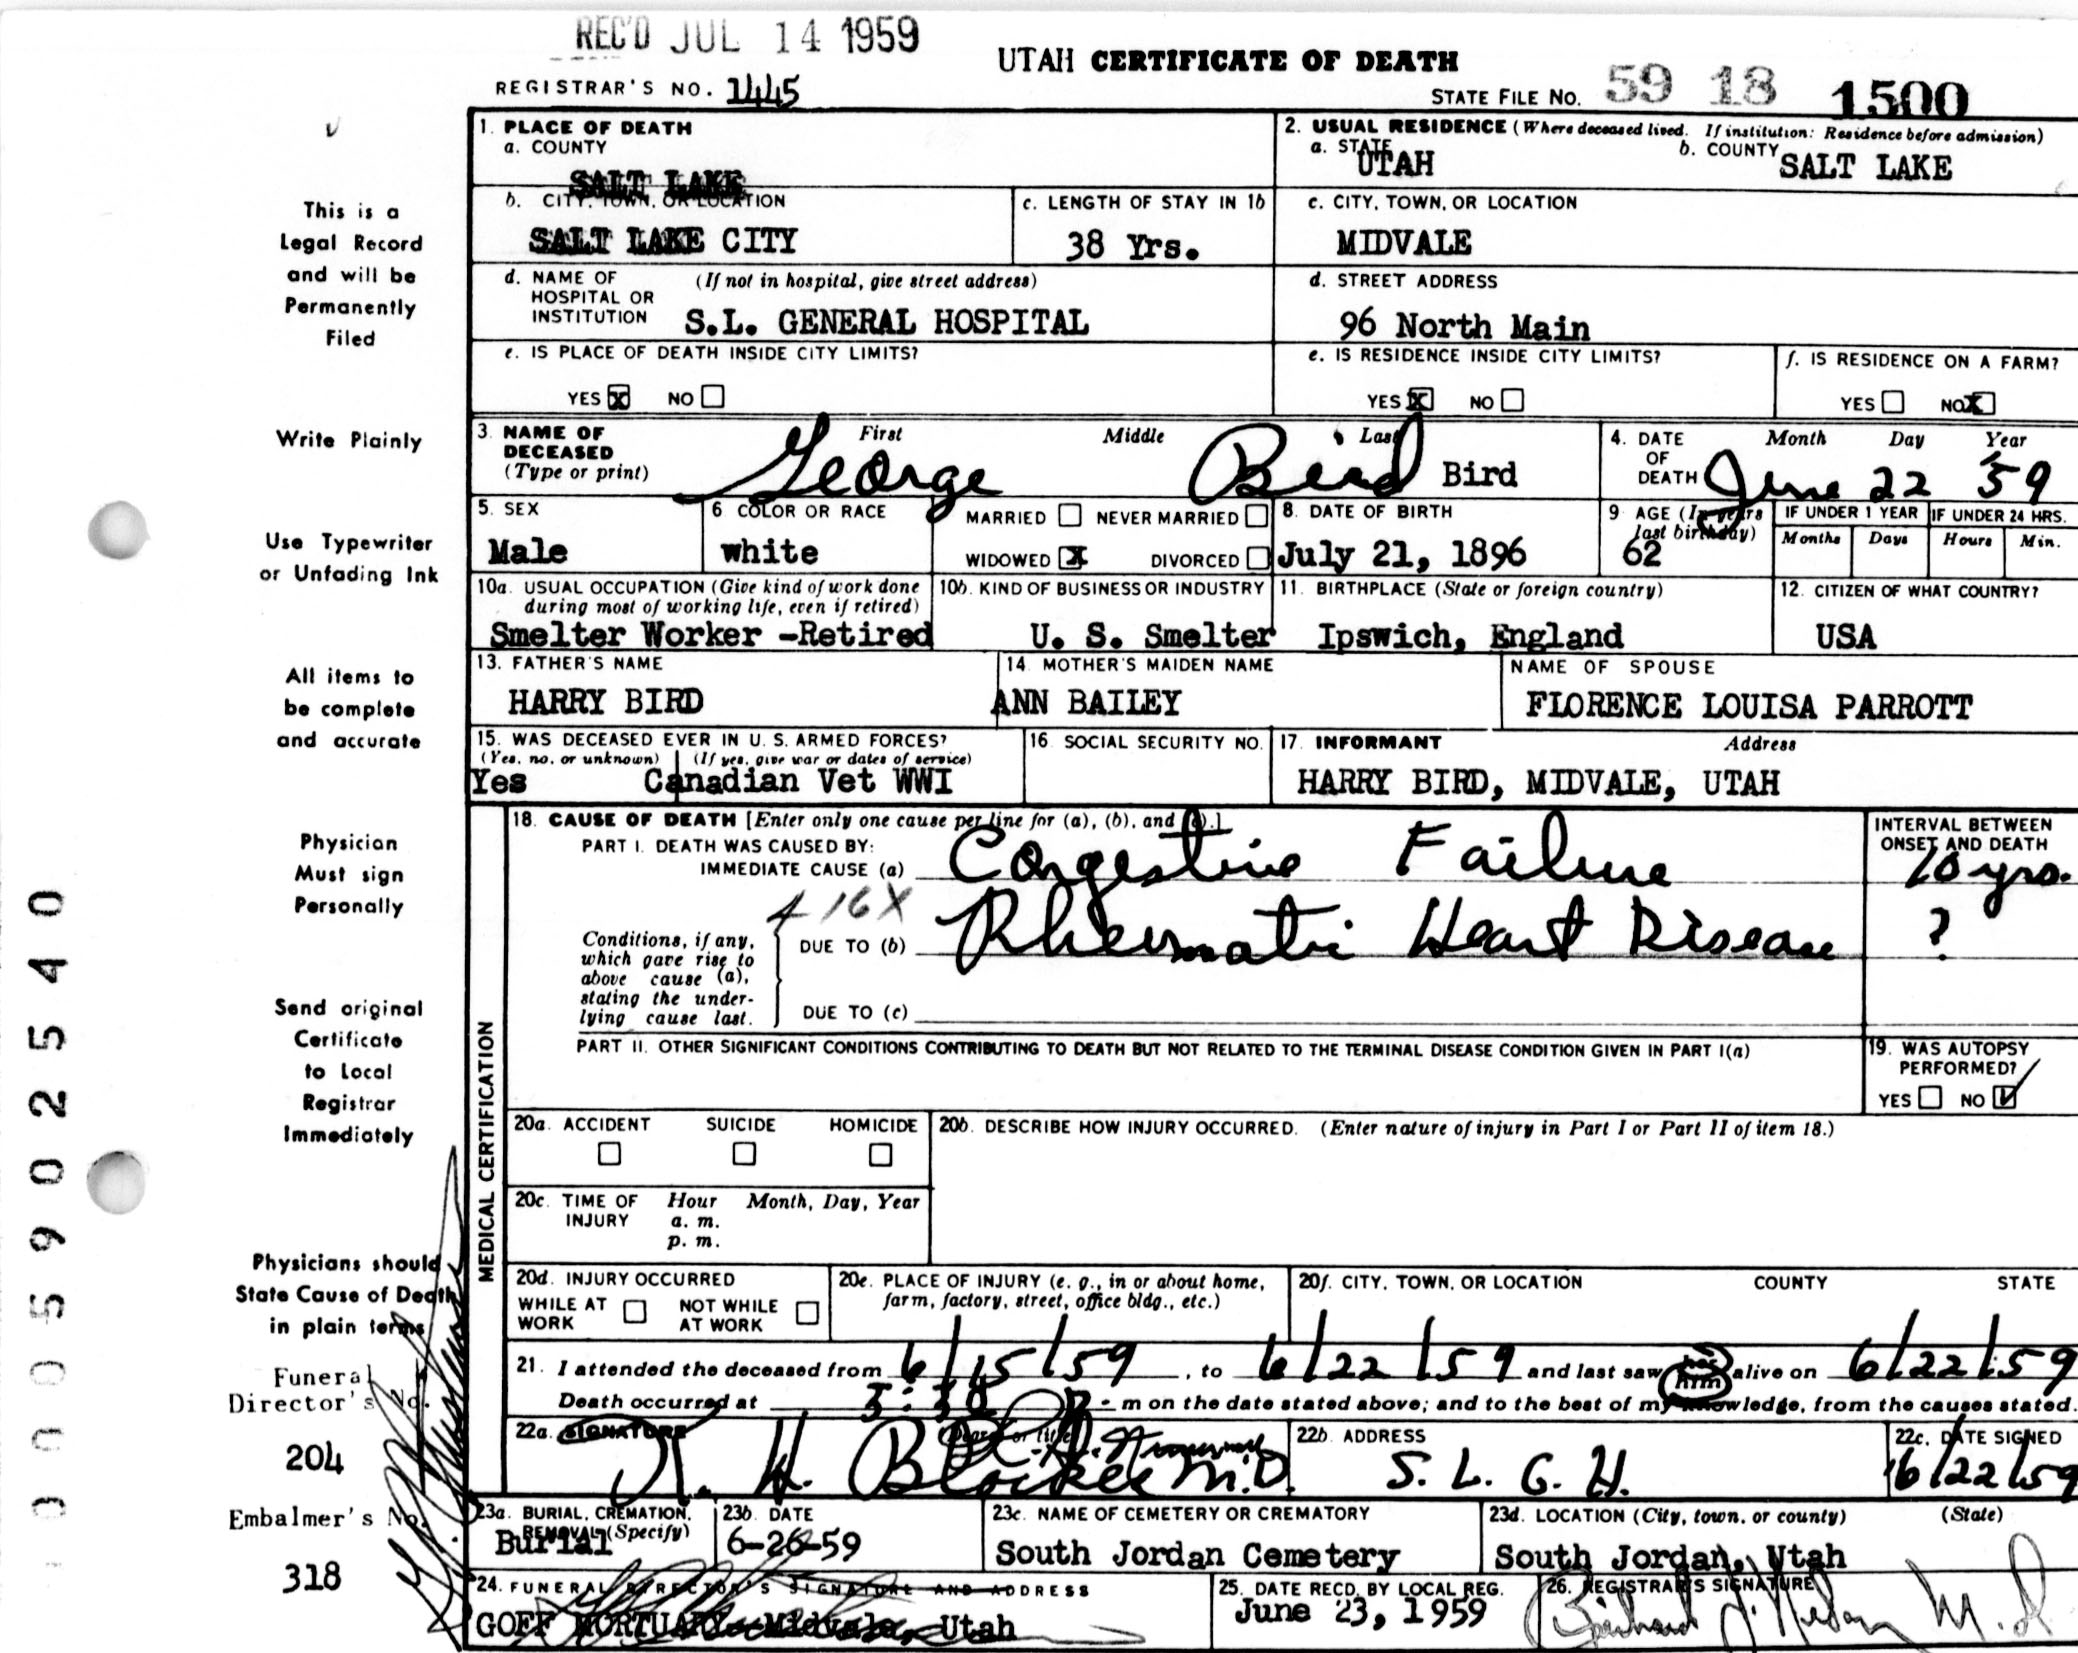 REC'D JUL 14 1959
UTAH CERTIFICATE OF DEATH
REGISTRAR'S NO. 1445
STATE FILE NO. 59 18 1500
1. PLACE OF DEATH
a. COUNTY
SALT LAKE
2. USUAL RESIDENCE (Where deceased lived. If institution: Residence before admission)
a. STATE UTAH
b. COUNTY SALT LAKE
b. CITY, TOWN, OR LOCATION
SALT LAKE CITY
c. LENGTH OF STAY IN 1b
38 Yrs.
c. CITY, TOWN, OR LOCATION
MIDVALE
d. NAME OF HOSPITAL OR INSTITUTION (If not in hospital, give street address)
S.L. GENERAL HOSPITAL
d. STREET ADDRESS
96 North Main
e. IS PLACE OF DEATH INSIDE CITY LIMITS?
YES X NO
e. IS RESIDENCE INSIDE CITY LIMITS?
YES X NO
f. IS RESIDENCE ON A FARM?
YES NO X
3. NAME OF DECEASED (Type or print)
First Middle Last
George Bird Bird
4. DATE OF DEATH Month Day Year
June 22 '59
5. SEX
Male
6 COLOR OR RACE
white
MARRIED NEVER MARRIED
WIDOWED X DIVORCED
8. DATE OF BIRTH
July 21, 1896
9 AGE (In years last birthday)
62
IF UNDER 1 YEAR
Months Days
IF UNDER 24 HRS.
Hours Min.
10a. USUAL OCCUPATION (Give kind of work done during most of working life, even if retired)
Smelter Worker -Retired
10b. KIND OF BUSINESS OR INDUSTRY
U. S. Smelter
11. BIRTHPLACE (State or foreign country)
Ipswich, England
12. CITIZEN OF WHAT COUNTRY?
USA
13. FATHER'S NAME
HARRY BIRD
14. MOTHER'S MAIDEN NAME
ANN BAILEY
NAME OF SPOUSE
FLORENCE LOUISA PARROTT
15. WAS DECEASED EVER IN U. S. ARMED FORCES?
(Yes, no, or unknown) (If yes, give war or dates of service)
Yes Canadian Vet WWI
16. SOCIAL SECURITY NO.
17. INFORMANT Address
HARRY BIRD, MIDVALE, UTAH
MEDICAL CERTIFICATION
18. CAUSE OF DEATH [Enter only one cause per line for (a), (b), and (c).]
PART I. DEATH WAS CAUSED BY:
IMMEDIATE CAUSE (a) Congestive Failure
INTERVAL BETWEEN ONSET AND DEATH
10 yrs.
416X
Conditions, if any, which gave rise to above cause (a), stating the underlying cause last.
DUE TO (b) Rheumatic Heart Disease ?
DUE TO (c)
PART II. OTHER SIGNIFICANT CONDITIONS CONTRIBUTING TO DEATH BUT NOT RELATED TO THE TERMINAL DISEASE CONDITION GIVEN IN PART I(a)
19. WAS AUTOPSY PERFORMED?
YES NO ✓
20a. ACCIDENT SUICIDE HOMICIDE
20b. DESCRIBE HOW INJURY OCCURRED. (Enter nature of injury in Part I or Part II of item 18.)
20c. TIME OF INJURY Hour a. m. p. m. Month, Day, Year
20d. INJURY OCCURRED
WHILE AT WORK NOT WHILE AT WORK
20e. PLACE OF INJURY (e. g., in or about home, farm, factory, street, office bldg., etc.)
20f. CITY, TOWN, OR LOCATION COUNTY STATE
21. I attended the deceased from 6/15/59, to 6/22/59 and last saw her him alive on 6/22/59
Death occurred at 3:30 P. m on the date stated above; and to the best of my knowledge, from the causes stated.
22a. SIGNATURE (Degree or title)
M.D.
22b. ADDRESS
S. L. G. H.
22c. DATE SIGNED
6/22/59
23a. BURIAL, CREMATION, REMOVAL (Specify)
Burial
23b. DATE
6-26-59
23c. NAME OF CEMETERY OR CREMATORY
South Jordan Cemetery
23d. LOCATION (City, town, or county) (State)
South Jordan, Utah
24. FUNERAL DIRECTOR'S SIGNATURE AND ADDRESS
GOFF MORTUARY Midvale, Utah
25. DATE RECD. BY LOCAL REG.
June 23, 1959
26. REGISTRAR'S SIGNATURE
M. D
This is a
Legal Record
and will be
Permanently
Filed
Write Plainly
Use Typewriter
or Unfading Ink
All items to
be complete
and accurate
Physician
Must sign
Personally
Send original
Certificate
to Local
Registrar
Immediately
Physicians should
State Cause of Death
in plain terms
Funeral
Director's No.
204
Embalmer's No.
318